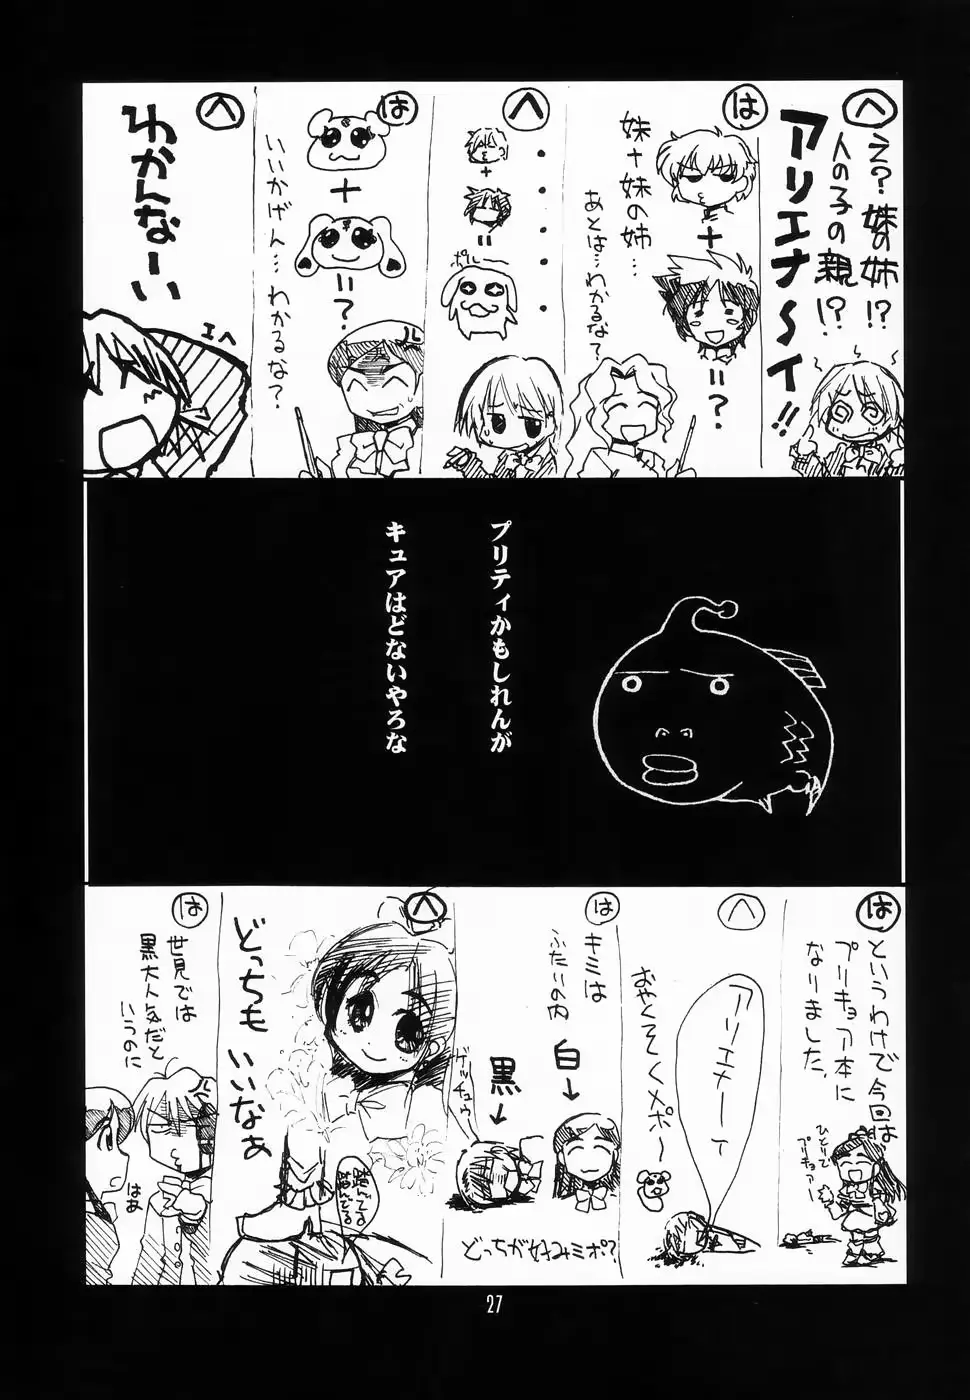 へ
え?妹の姉!?
人の子の親!?
アリエナ〜イ!!
は
+
=?
妹+妹の姉…
あとは…わかるな?
へ
・・・・・・
+
=
ポルー
は
+
=?
いいかげん…わかるな?
へ
わかんなーい
エヘ
プリティかもしれんが
キュアはどないやろな
は
というわけで今回は
プリキュア本に
なりました。
ひとりで
プリキュアー
へ
アリエナーイ
おやくそくメポ〜
は
キミは
ふたりの内
白→
黒→
ゲッチュウ
どっちが好みミポ?
へ
どっちも
いいなぁ
踏んでる
踏んでる
は
世見では
黒大人気だと
いうのに
はぁ
27